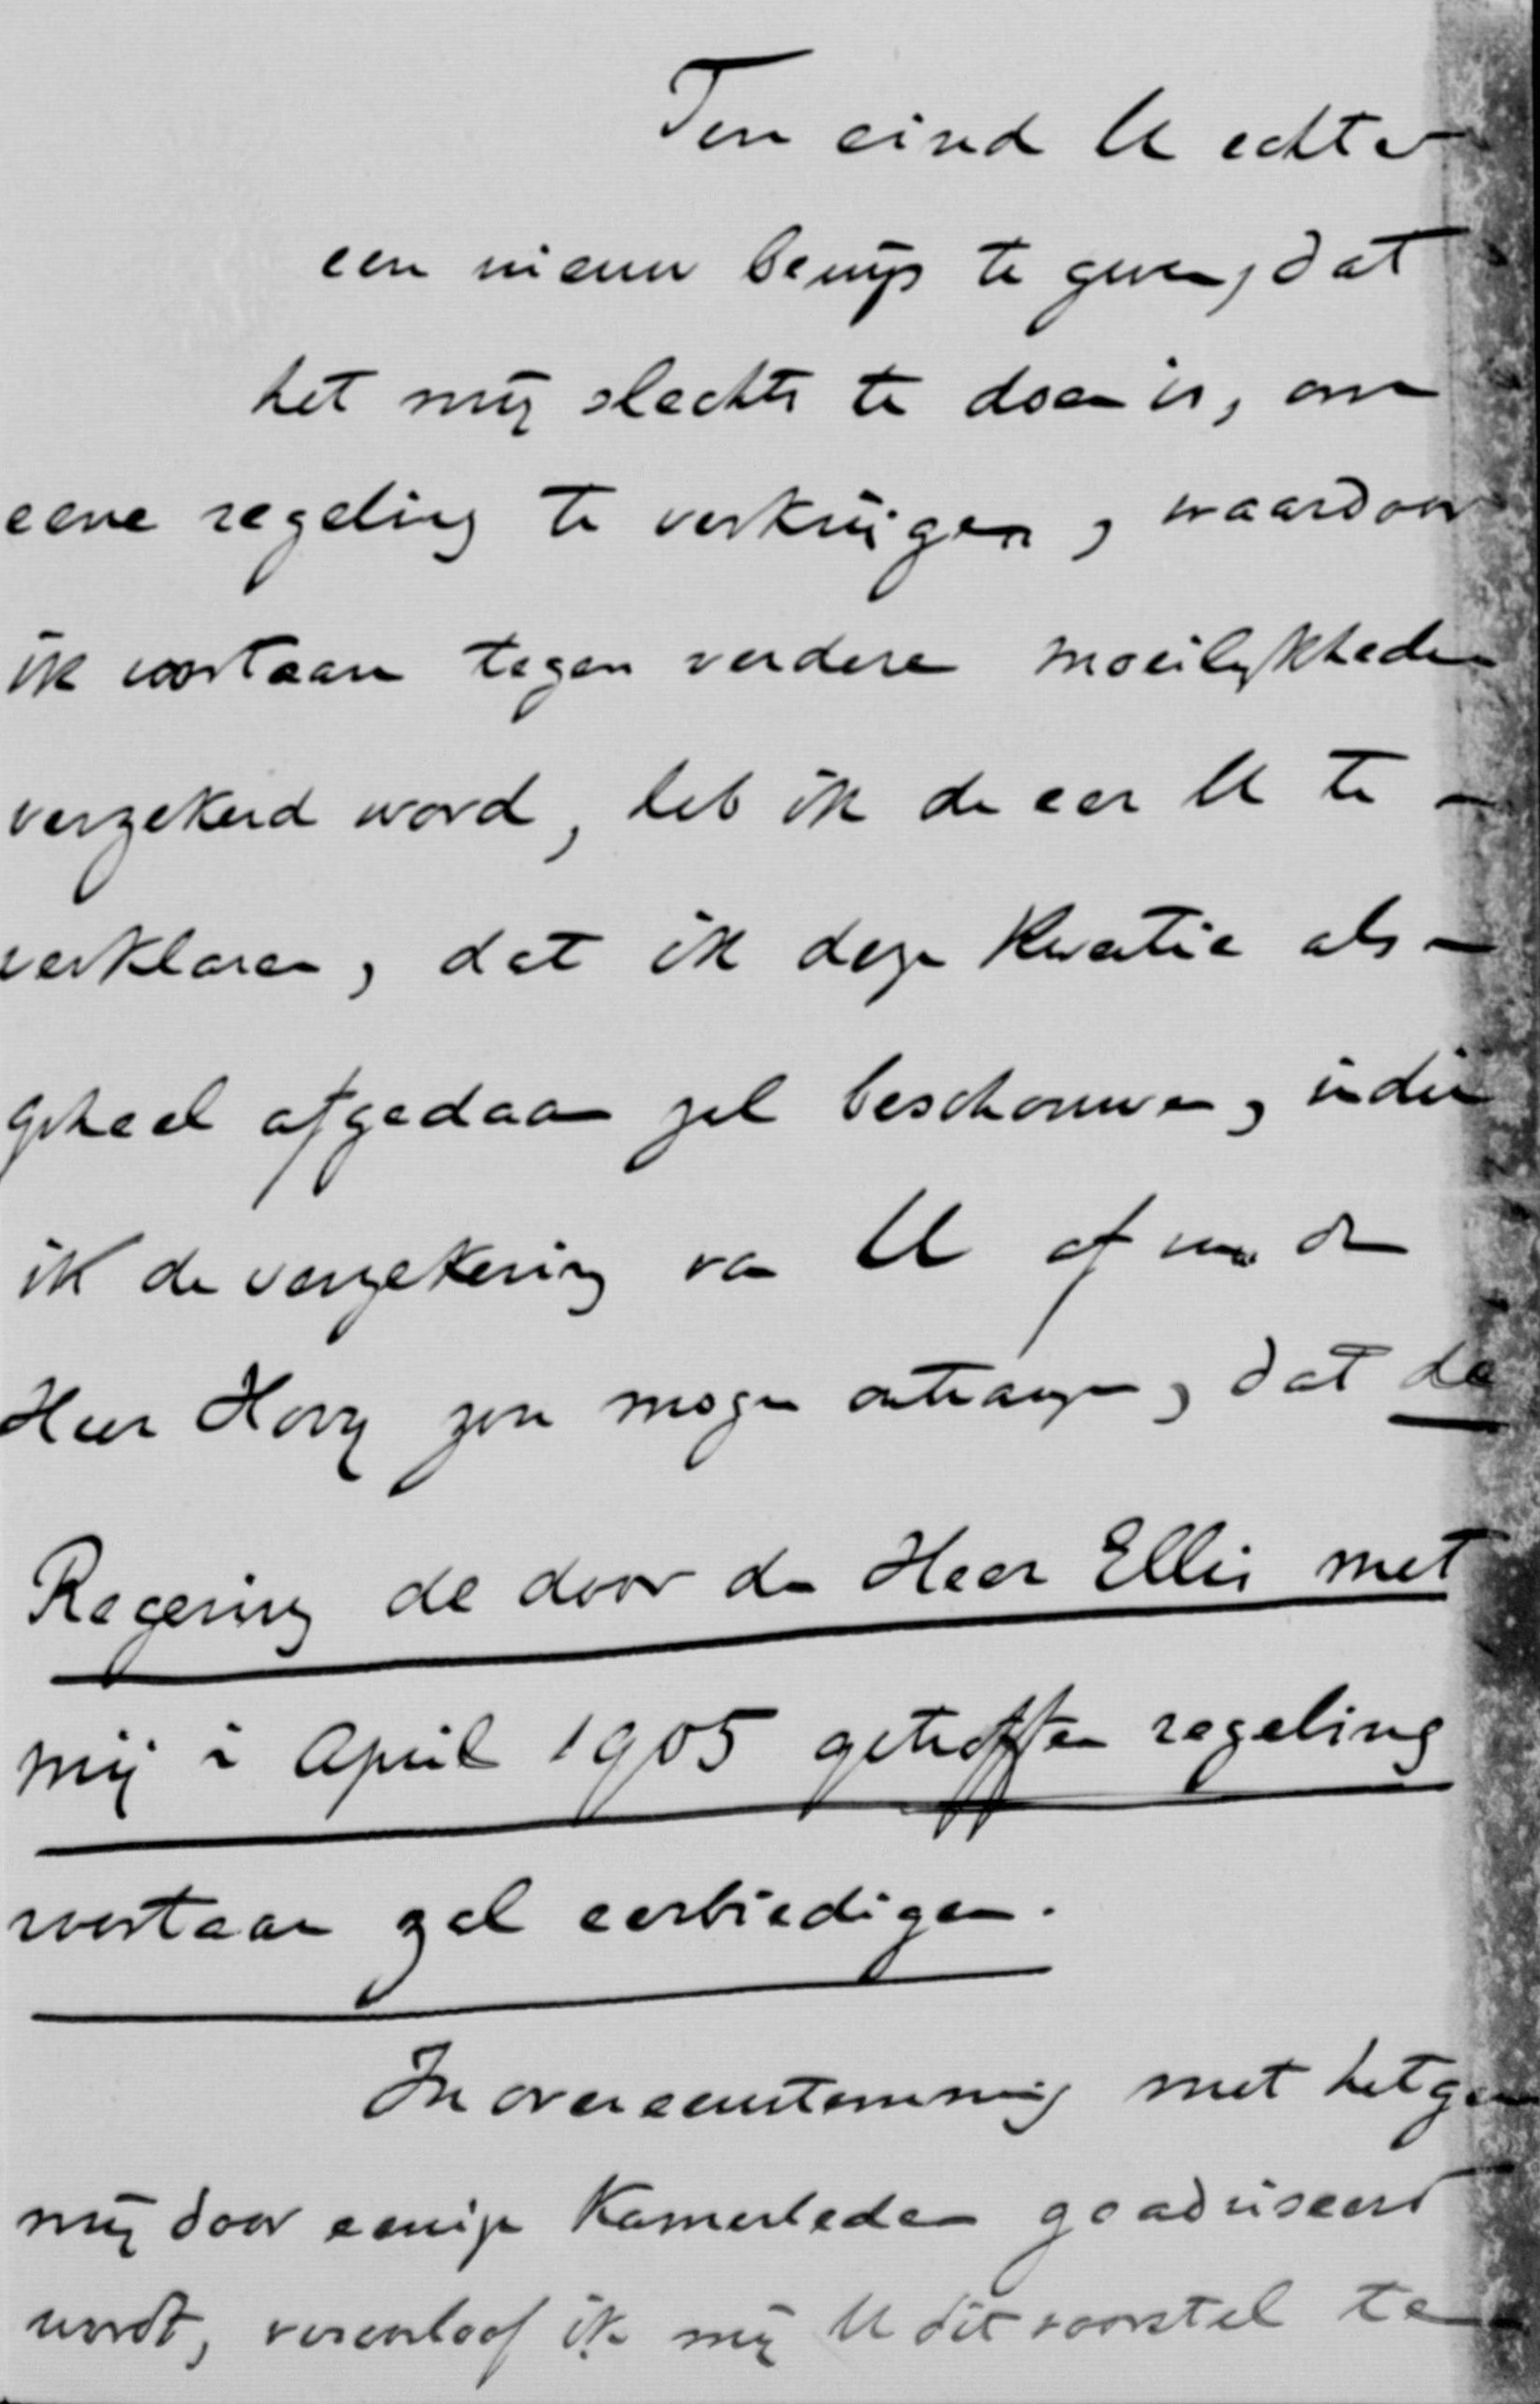 Ten eind U echter
een nieuw bewijs te geven, dat
het mij slechts te doen is, om
eene regeling te verkrijgen, waardoor
ik voortaan tegen verdere moeilijkheden
verzekerd word, heb ik de eer U te
verklaren, dat ik deze kwestie als
geheel afgedaan zal beschouwen, indien
ik de verzekering van U of van den
Heer Hovy zou mogen ontvangen, dat de
Regering de door den Heer Ellis met
mij in April 1905 getroffen regeling
voortaan zal eerbiedigen.
In overeenstemming met hetgeen
mij door eenige Kamerleden geadviseerd
wordt, veroorloof ik mij U dit voorstel te